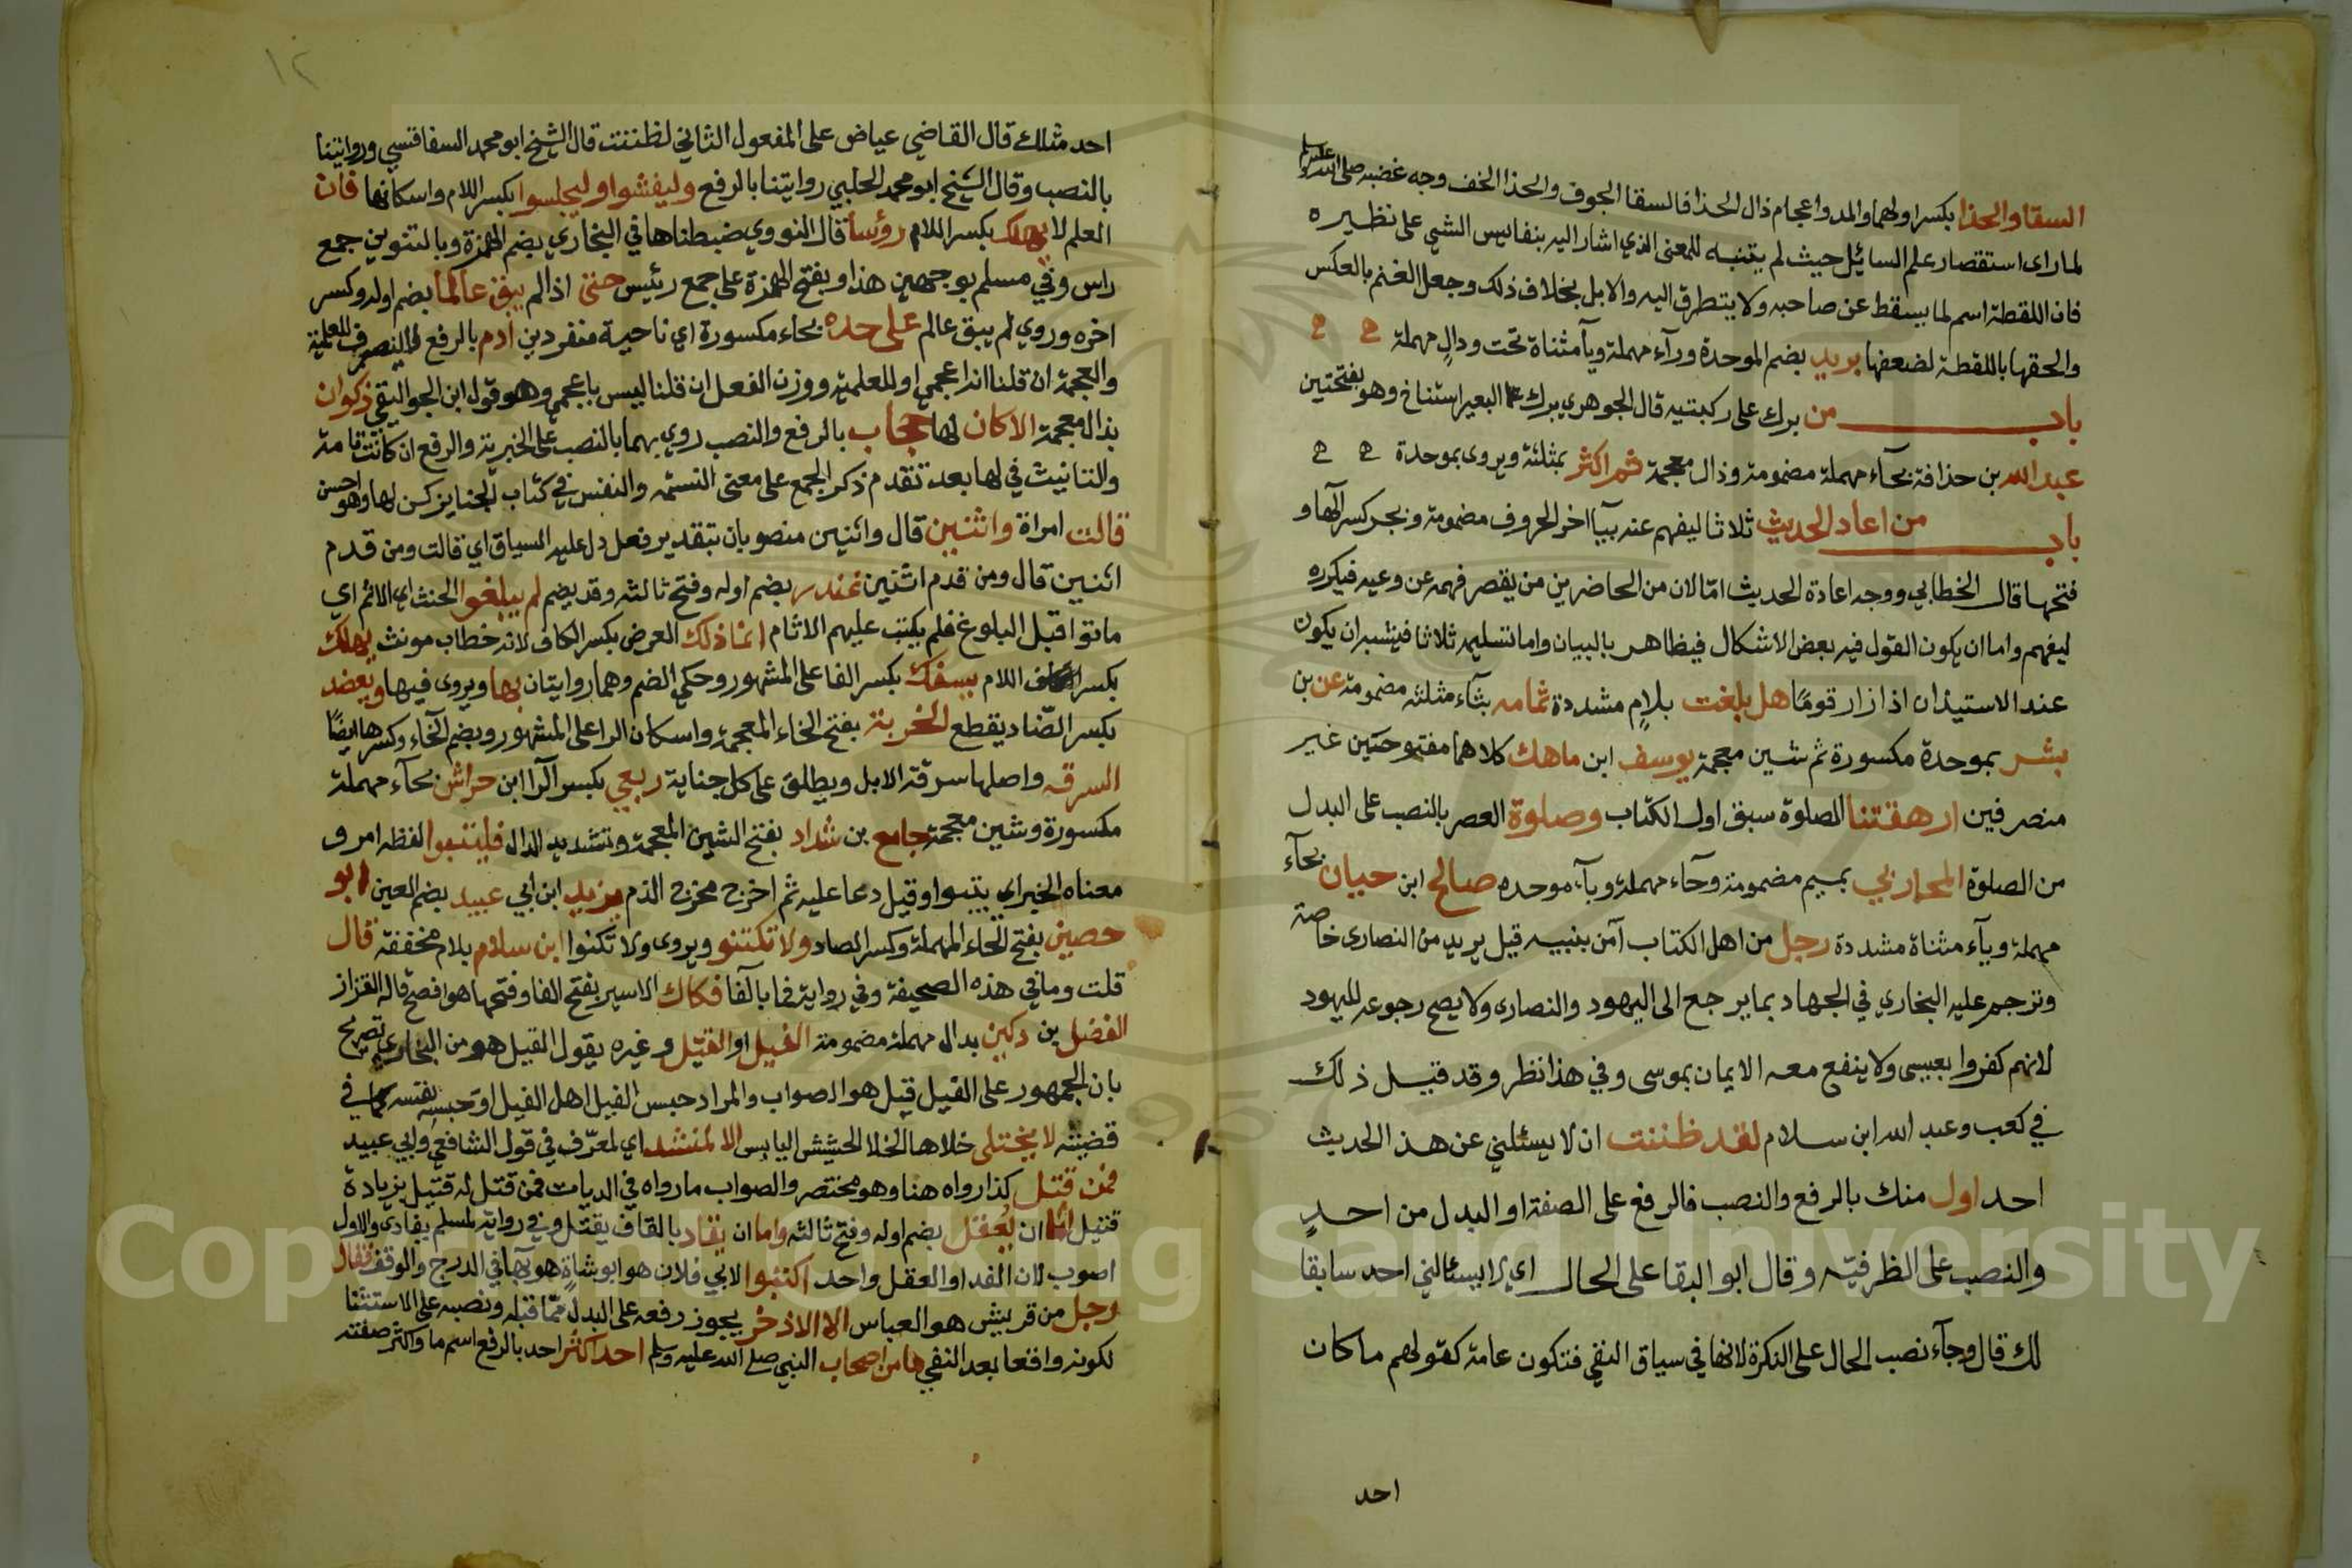 السقا والحذا بكسر اولهما والمد واعجام ذال الحذا فالسقا الجوف والحذا الخف وجه غضبه صلى الله عليه وسلم
لما راى استقصار علم السائل حيث لم يتنبه للمعنى الذي اشار اليه بنفاليس الشي على نظيره
فان اللقطة اسم لما يسقط عن صاحبه ولا يتطرق اليه والابل بخلاف ذلك وجعل الغنم بالعكس
والحقها باللقطة لضعفها بريد بضم الموحدة ورآء مهملة ويآ مثناة تحت ودال مهملة
باب من برك على ركبتيه قال الجوهري برك البعير استناخ وهو بفتحتين
عبد الله بن حذافة بحآء مهملة مضمومة وذال معجمة ثم اكثر بمثلثة ويروى بموحدة
باب من اعاد الحديث ثلاثا ليفهم عنه بيآ اخر الحروف مضمومة ويجر كسر الهآ و
فتحها قال الخطابي ووجه اعادة الحديث امّا لان من الحاضرين من يقصر فهمه عن وعيه فيكرره
ليفهم واما ان يكون القول فيه بعض الاشكال فيظاهر بالبيان واما تسليمه ثلاثا فيشبه ان يكون
عند الاستيذان اذا زار قومًا هل بلغت بلامٍ مشددة ثمامه بثآء مثلثه مضمومة عن بن
بشر بموحدة مكسورة ثم شين معجمة يوسف ابن ماهك كلاهما مفتوحتين غير
منصرفين ارهقتنا الصلوة سبق اول الكتاب وصلوة العصر بالنصب على البدل
من الصلوة المحاربي بميم مضمومة وحآء مهملة وبآء موحده صالح ابن حيان بحآء
مهملة ويآء مثناة مشددة رجل من اهل الكتاب آمن بنبيه قيل يريد من النصارى خاصة
وترجم عليه البخاري في الجهاد بما يرجع الى اليهود والنصارى ولا يصح رجوعه لليهود
لانهم كفروا بعيسى ولا ينفع معه الايمان بموسى وفي هذا نظر وقد قيل ذلك
في كعب وعبد الله ابن سلام لقد ظننت ان لا يسئلني عن هذا الحديث
احد اول منك بالرفع والنصب فالرفع على الصفة او البدل من احدٍ
والنصب على الظرفيّه وقال ابو البقا على الحال اي لا يسئالني احد سابقا
لك قال وجآء نصب الحال على النكرة لانها في سياق النفي فتكون عامة كقولهم ما كان
احد
١٢
احد مثلك قال القاضي عياض على المفعول الثاني لظننت قال الشيخ ابو محمد السفاقسي وروايتنا
بالنصب وقال الشيخ ابو محمد الحلبي روايتنا بالرفع وليفشوا وليجلسوا بكسر اللام واسكانها فان
العلم لا يهلك بكسر اللام رؤسا قال النووي ضبطناها في البخاري بضم الهمزة وبالتنوين جمع
راس وفي مسلم بوجهين هذا وبفتح الهمزة على جمع رئيس حتى اذا لم يبق عالما بضم اوله وكسر
اخره وروي لم يبق عالم على حده بحاء مكسورة اي ناحية منفردين ادم بالرفع للعلمية
والعجمة ان قلنا انه اعجمي او للعلميّة ووزن الفعل ان قلنا ليس باعجمي وهو قول ابن الجواليقي ذكوان
بذال معجمة الا كان لها حجاب بالرفع والنصب روي بهما بالنصب على الخبرية والرفع ان كانت تامة
والتانيث في لها بعد تقدم ذكر الجمع على معنى النسمة والنفس في كتاب الجنايز كن لها وهو احسن
قالت امراة واثنين قال واثنين منصوبان بتقدير فعل دل عليه السياق اي قالت ومن قدم
اثنين قال ومن قدم اثنين غندر بضم اوله وفتح ثالثه وقد يضم لم يبلغوا الحنث اي الاثم اي
ماتوا قبل البلوغ فلم يكتب عليهم الاثام انما ذلك العرض بكسر الكاف لانه خطاب مونث يهلك
بكسر اللام يسفك بكسر الفا على المشهور وحكي الضم وهما روايتان بها ويروى فيها ويعضد
بكسر الضّاد يقطع الخربة بفتح الخاء المعجمة واسكان الرا على المشهور وبضم الخاء وكسرها ايضًا
السرقه واصلها سرقة الابل ويطلق على كل جناية ربعي بكسر الرآ ابن حراش بحآء مهملة
مكسورة وشين معجمة جامع بن شداد بفتح الشين المعجمة وتشديد الدال فليتبوا لفظه امر و
معناه الخبر اي يتبوا وقيل دعا عليه ثم اخرج مخرج الذم يزيد ابن ابي عبيد بضم العين ابو
حصين بفتح الحاء المهملة وكسر الصاد ولا تكتنو ويروى ولا تكنوا ابن سلام بلام مخففة قال
قلت وما في هذه الصحيفة وفي رواية فما بالفآ فكاك الاسير بفتح الفا وفتحها هو افصح قاله القزاز
الفضل بن دكين بدال مهملة مضمومة الفيل او القتل وغيره يقول الفيل هو من البخاري تصريح
بان الجمهور على الفيل قيل هو الصواب والمراد حبس الفيل اهل الفيل او حبسه نفسه كما في
قضيته لا يختلى خلاها الخلا الحشيش اليابس الا لمنشد اي لمعرّف في قول الشافعي وابي عبيد
فمن قتل كذا رواه هنا وهو مختصر والصواب ما رواه في الديات فمن قتل له قتيل بزيادة
قتيل اما ان يعقل بضم اوله وفتح ثالثه واما ان يقاد بالقاف يقتل وفي رواية لمسلم يفادى والاول
اصوب لان الفدا والعقل واحد اكتبوا لابي فلان هو ابو شاةٍ هو بهآ في الدرج والوقف فقال
رجل من قريش هو العباس الا الاذخر يجوز رفعه على البدل ممّا قبله ونصبه على الاستثنا
لكونه واقعا بعد النفي ما من اصحاب النبي صلى الله عليه وسلم احد اكثر احد بالرفع اسم ما واكثر صفته